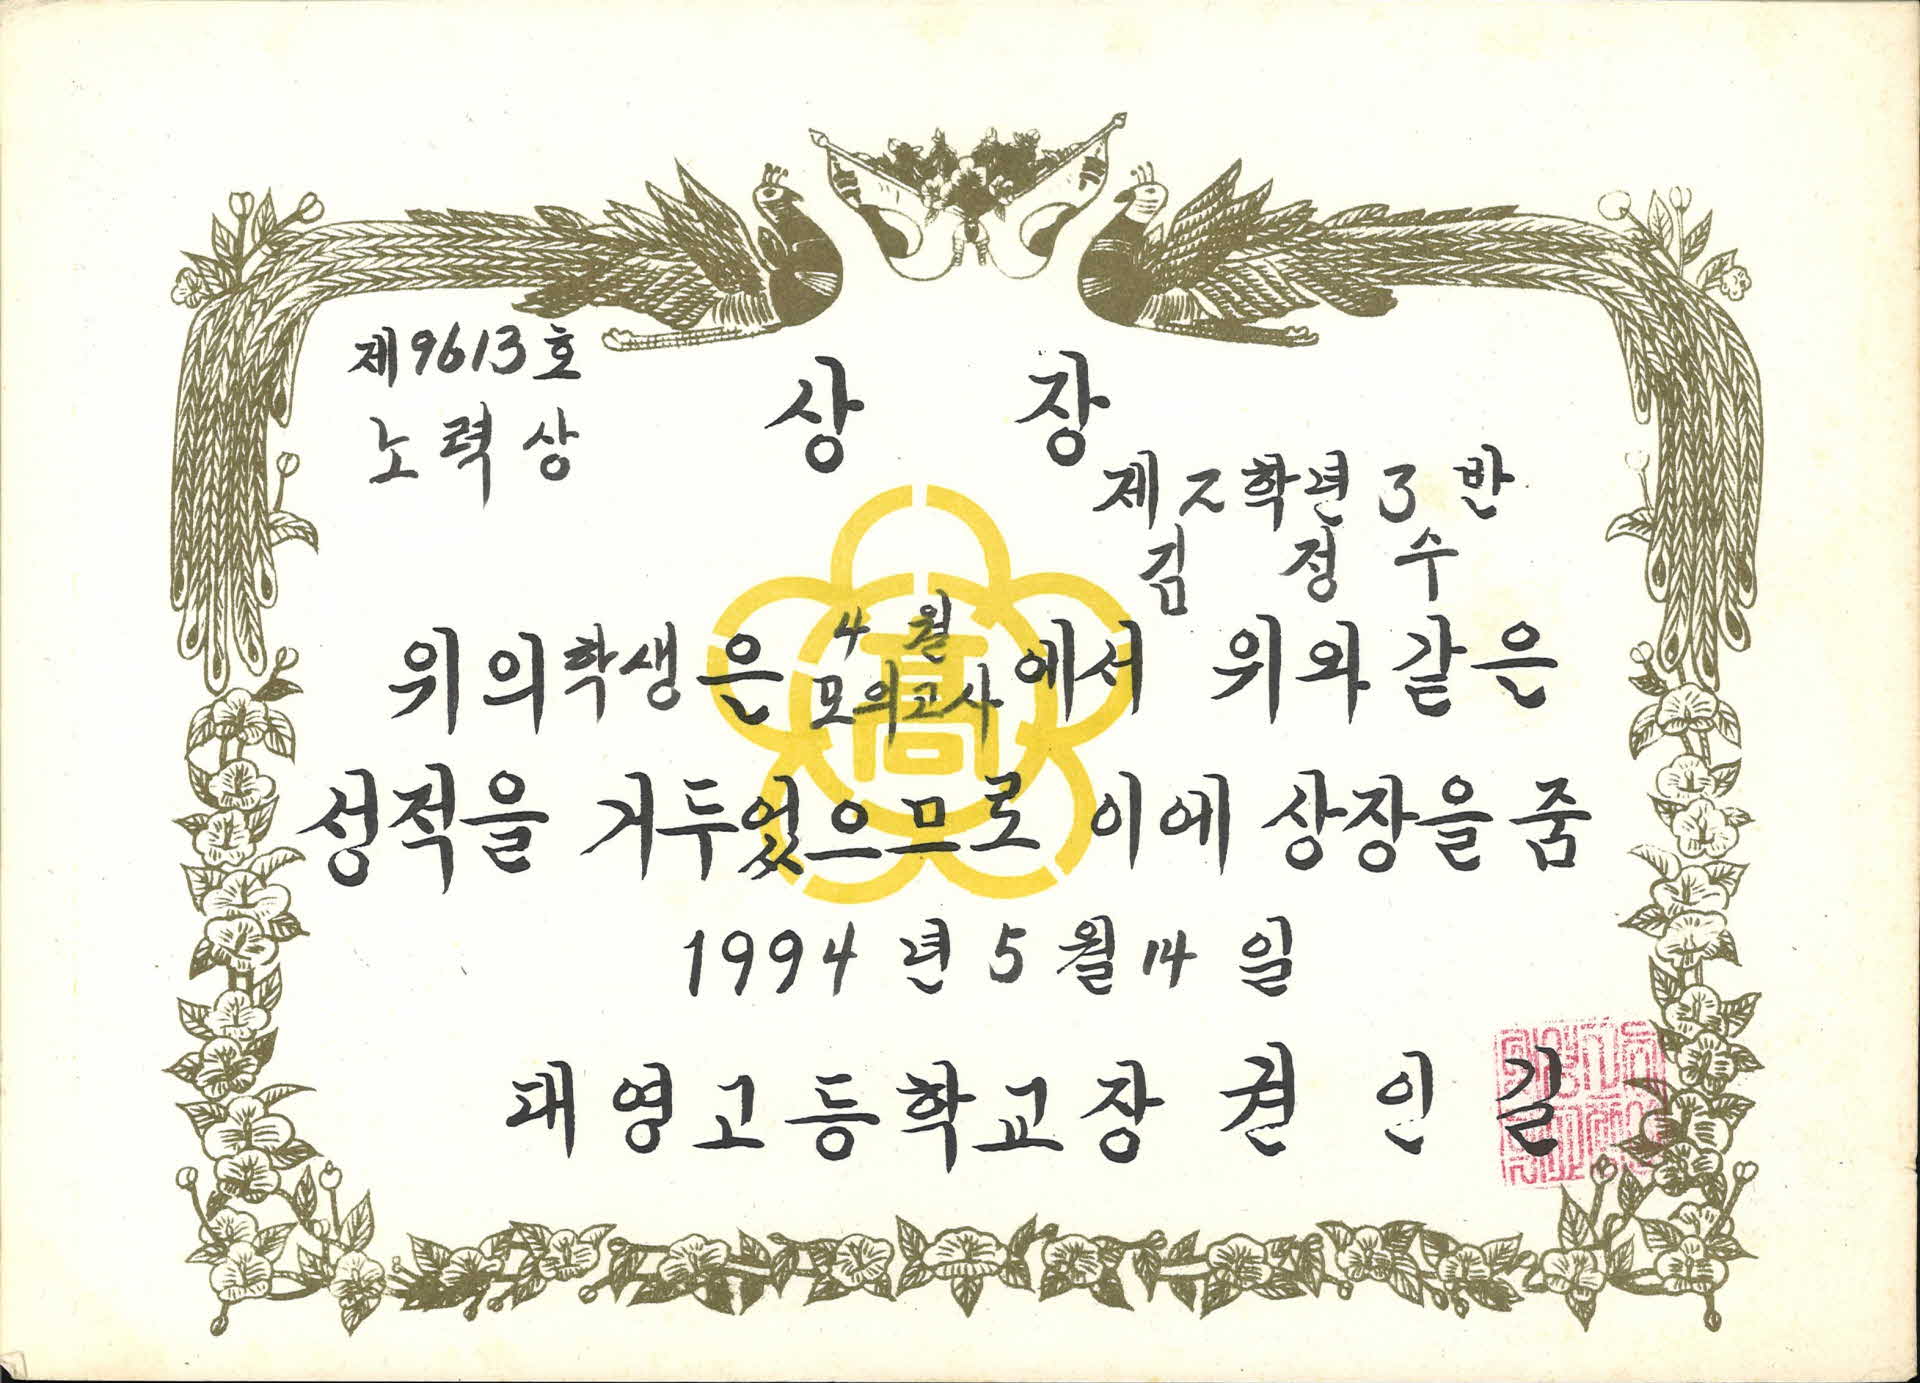 제9613호
노력상
상장
제2학년 3반
김정수
위의 학생은 4월 모의고사에서 위와 같은
성적을 거두었으므로 이에 상장을 줌
1994년 5월 14일
대영고등학교장 권인길
高